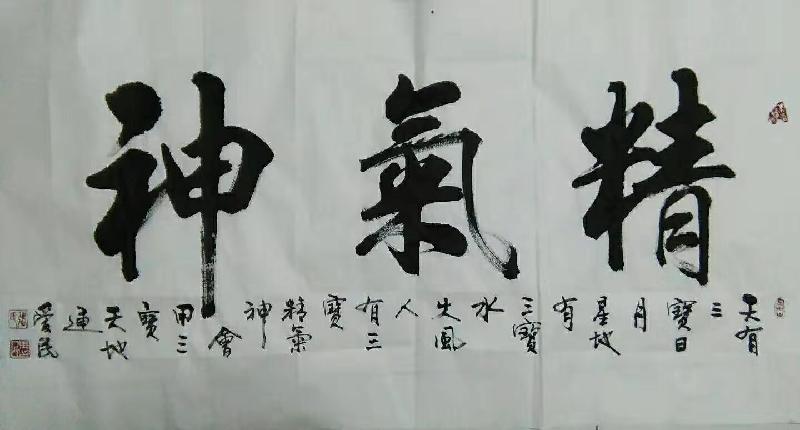 精氣神
天有
三
寶日
月
星地
有
三寶
水
火風
人
有三
寶
精氣
神
會
用三
寶
天地
通
愛民